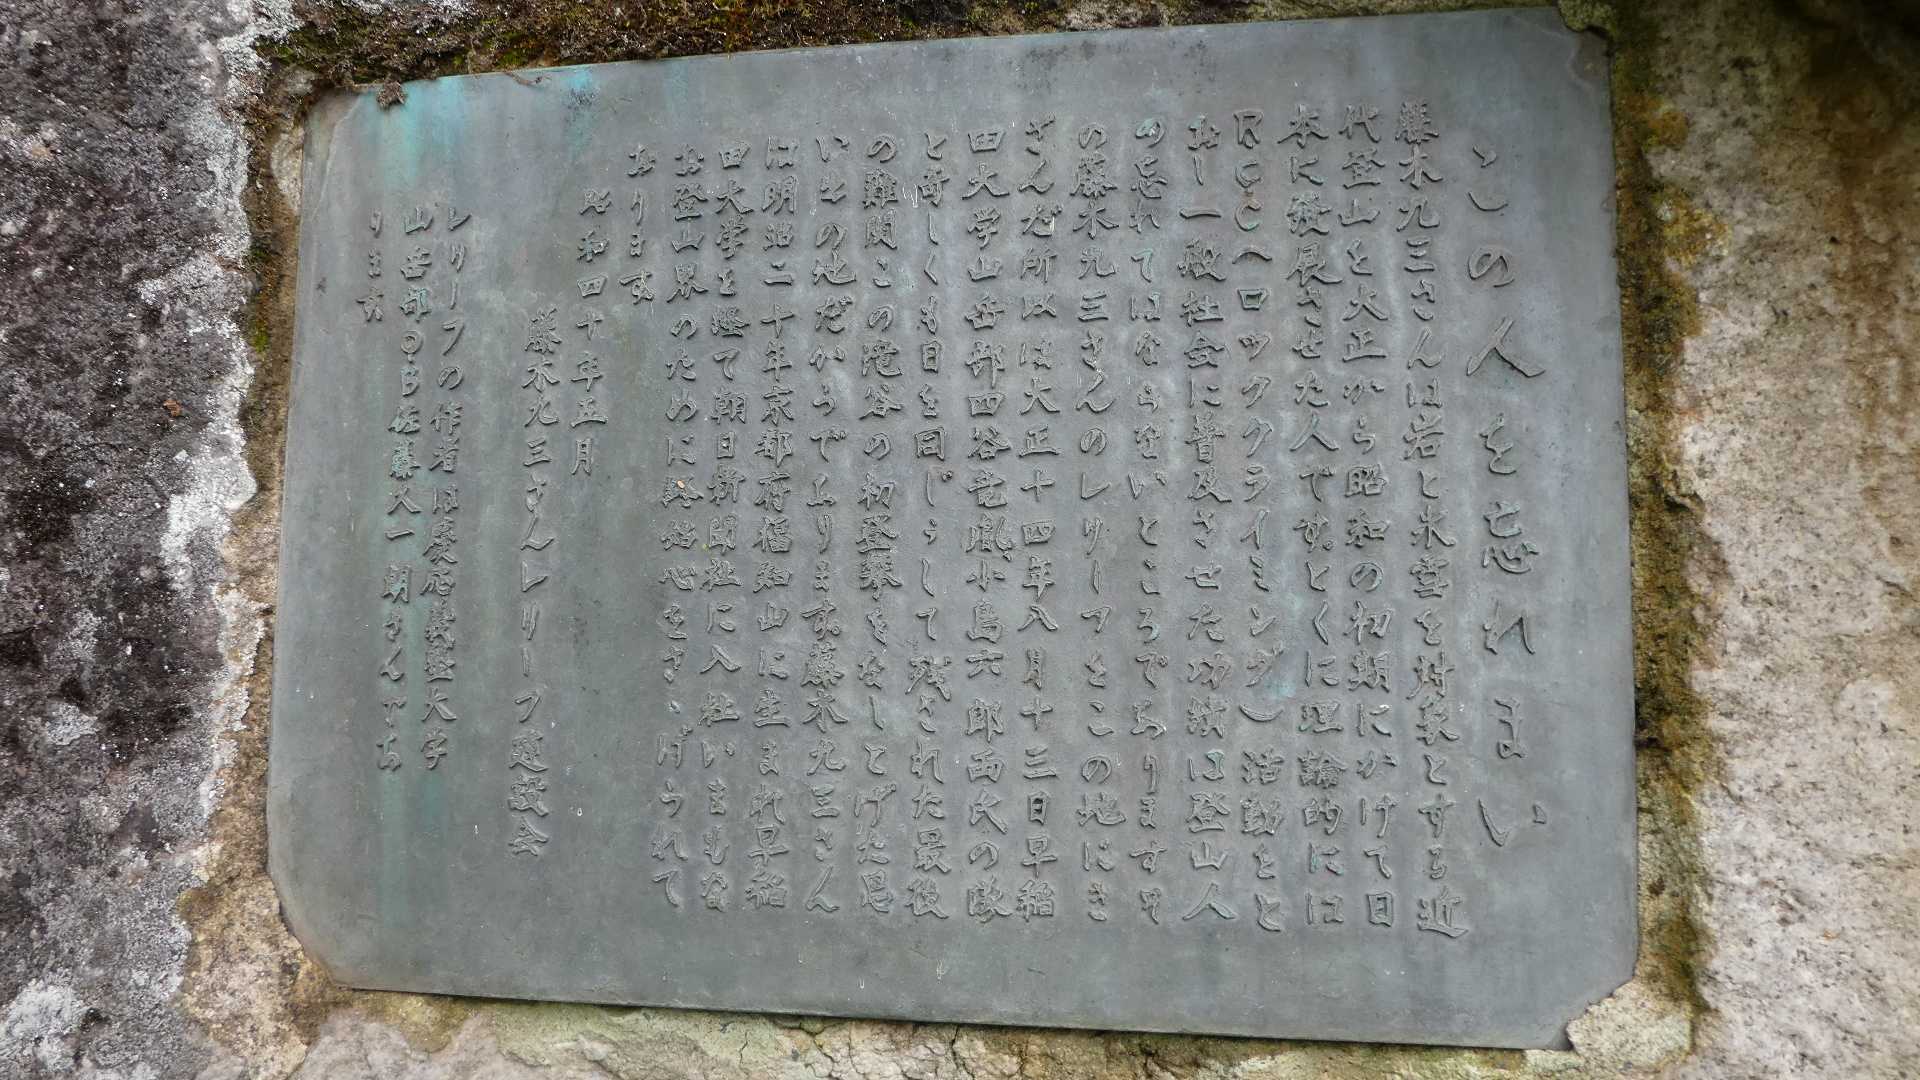 この人を忘れまい
藤木九三さんは岩と氷雪を対象とする近
代登山を大正から昭和の初期にかけて日
本に發展させた人です。とくに理論的には
RCC(ロッククライミング)活動をと
おし一般社会に普及させた功績は登山人
の忘れてはならないところであります
の藤木九三さんのレリーフをこの地にき
ざんだ所以は大正十四年八月十三日早稲
田大学山岳部四谷竜胤、小島六郎両氏の隊
と奇しくも日を同じうして残された最後
の難関この滝谷の初登攀をなしとげた思
い出の地だからであります。藤木九三さん
は明治二十年京都府福知山に生まれ早稲
田大学を経て朝日新聞社に入社いまもな
お登山界のために終始心をさゝげられて
おります
昭和四十年五月
藤木九三さんレリーフ建設会
レリーフの作者は慶応義塾大学
山岳部O.B佐藤久一朗さんであ
ります